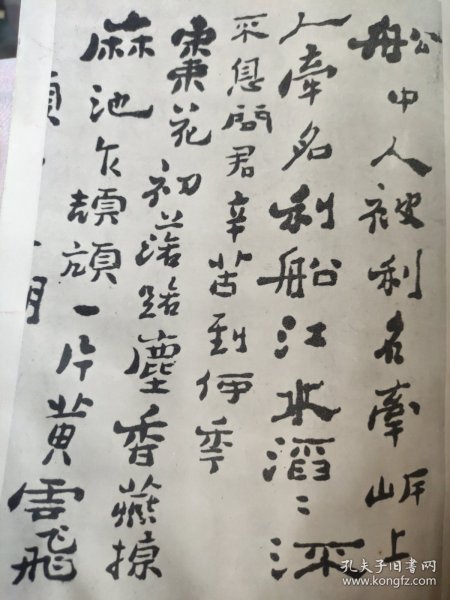 船中人被利名牽岸上
人牽名利船江水滔〻流
不息問君辛苦到何年
棗花初落路塵香燕掠
麻池乍頡頏一片黃雲飛
孔夫子旧书网
www.kongfz.com